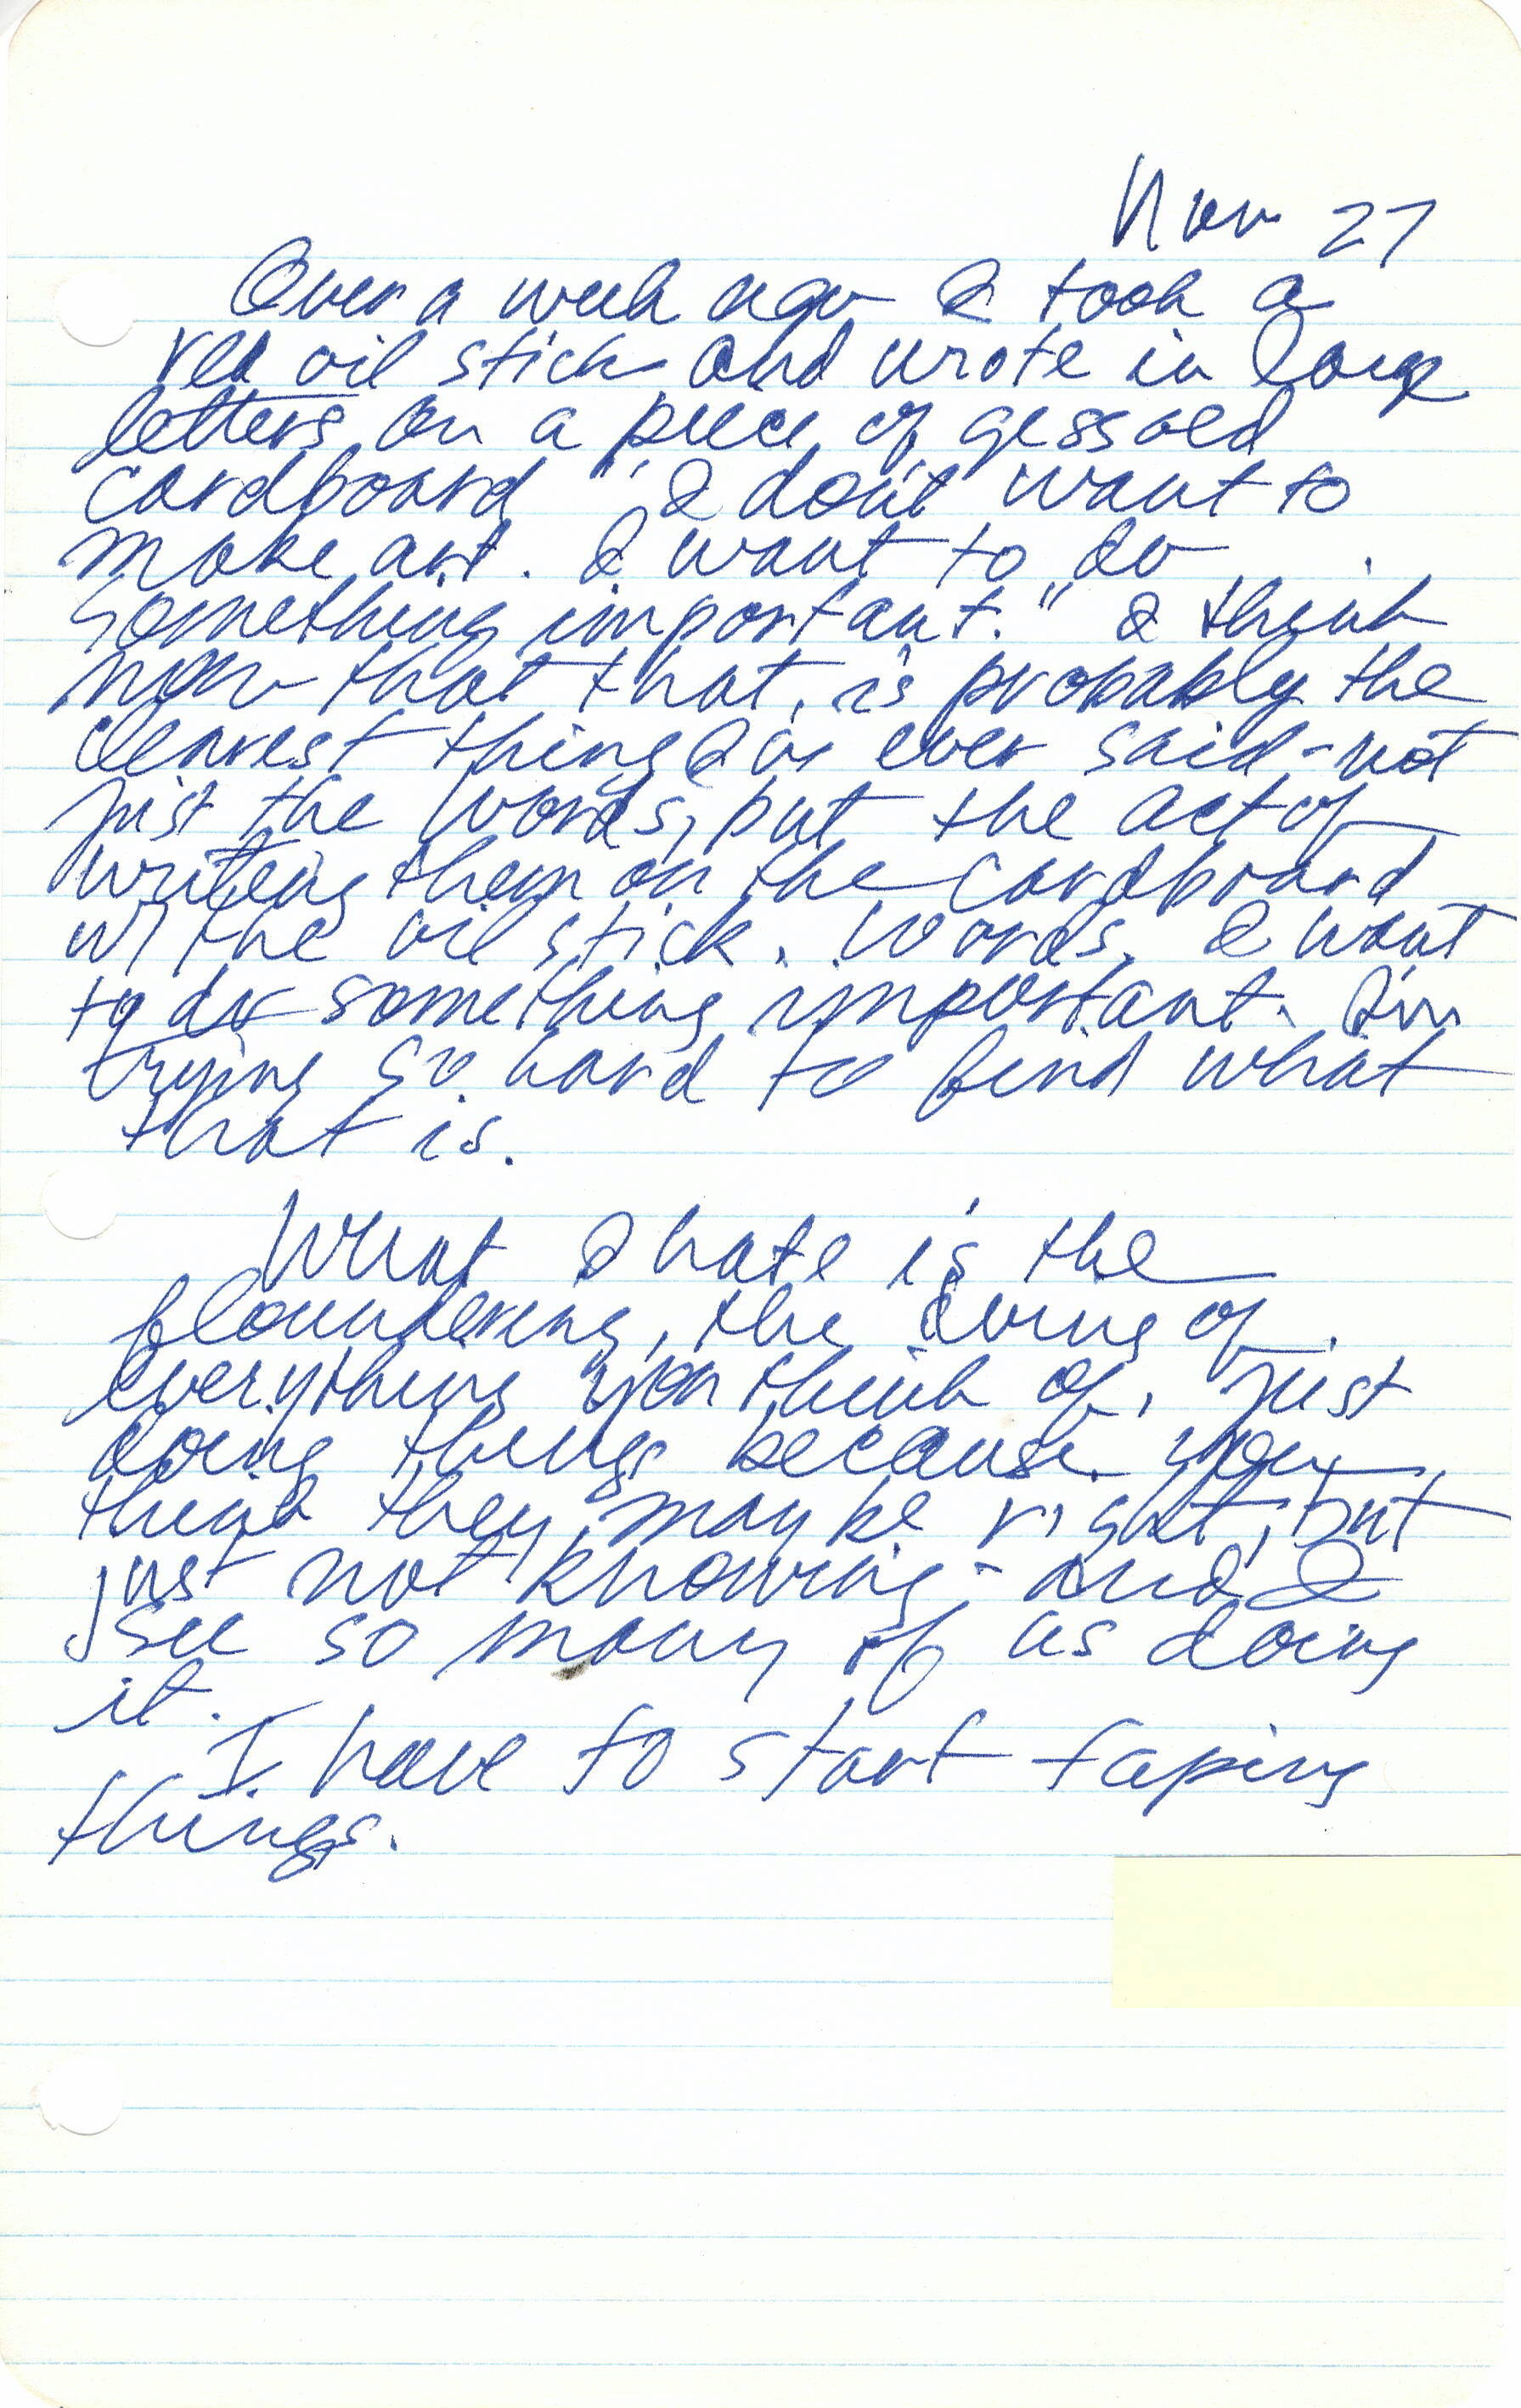 Nov 27
Over a week ago I took a
red oil stick and wrote in large
letters on a piece of gessoed
cardboard "I don't want to
make art. I want to do
something important." I think
now that that is probably the
clearest thing I've ever said - not
just the words, but the act of
writing them on the cardboard
w/ the oil stick. Words. I want
to do something important. I'm
trying so hard to find what
that is.
What I hate is the
floundering, the doing of
everything you think of, just
doing things because you
think they may be right, but
just not knowing - and I
see so many of us doing
it.
I have to start taping
things.